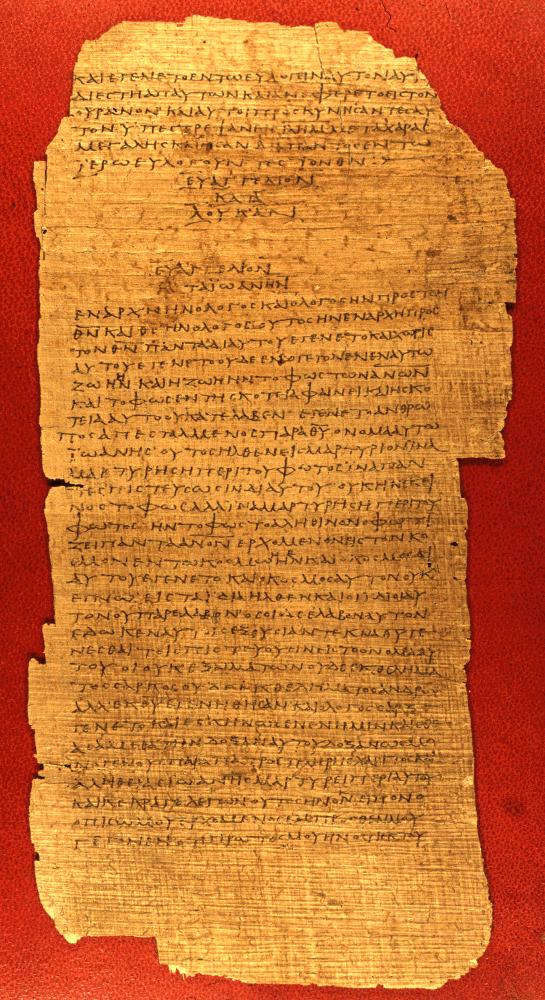 ΚΑΙΕΓΕΝΕΤΟΕΝΤΩΕΥΛΟΓΕΙΝΑΥΤΟΝΑΥ
ΔΙΕϹΤΗΑΠΑΥΤΩΝΚΑΙΑΝΕΦΕΡΕΤΟΕΙϹΤΟΝ
ΟΥΡΑΝΟΝ ΚΑΙΑΥΤΟΙΠΡΟϹΚΥΝΗϹΑΝΤΕϹΑΥ
ΤΟΝΥΠΕϹΤΡΕΨΑΝΕΙϹ ΜΕΤΑΧΑΡΑϹ
ΜΕΓΑΛΗϹΚΑΙΗϹΑΝΔΙΑΠΑΝΤΟϹΕΝΤΩ
ΪΕΡΩΕΥΛΟΓΟΥΝΤΕϹΤΟΝΘΝ
ΕΥΑΓΓΕΛΙΟΝ
ΚΑΤΑ
ΛΟΥΚΑΝ
ΕΥΑΓΓΕΛΙΟΝ
ΚΑΤΑΪΩΑΝΗΝ
ΕΝΑΡΧΗΗΝΟΛΟΓΟϹΚΑΙΟΛΟΓΟϹΗΝΠΡΟϹΤΟΝ
ΘΝΚΑΙΘϹΗΝΟΛΟΓΟϹΟΥΤΟϹΗΝΕΝΑΡΧΗΠΡΟϹ
ΤΟΝΘΝΠΑΝΤΑΔΙΑΥΤΟΥΕΓΕΝΕΤΟΚΑΙΧΩΡΙϹ
ΑΥΤΟΥΕΓΕΝΕΤΟΟΥΔΕΕΝΟΓΕΓΟΝΕΝΕΝΑΥΤΩ
ΖΩΗΗΝΚΑΙΗΖΩΗΗΝΤΟΦΩϹΤΩΝΑΝΩΝ
ΚΑΙΤΟΦΩϹΕΝΤΗϹΚΟΤΕΙΑΦΑΙΝΕΙΚΑΙΗϹΚΟ
ΤΕΙΑΑΥΤΟΟΥΚΑΤΕΛΑΒΕΝ ΕΓΕΝΕΤΟΑΝΘΡΩ
ΠΟϹΑΠΕϹΤΑΛΜΕΝΟϹΠΑΡΑΘΥΟΝΟΜΑΑΥΤΩ
ΪΩΑΝΗϹ ΟΥΤΟϹΗΛΘΕΝΕΙϹΜΑΡΤΥΡΙΟΝΪΝΑ
ΜΑΡΤΥΡΗϹΗΠΕΡΙΤΟΥΦΩΤΟϹΪΝΑΠΑΝ
ΤΕϹΠΙϹΤΕΥϹΩϹΙΝΔΙΑΥΤΟΥ ΟΥΚΗΝΕΚΕΙ
ΝΟϹΤΟΦΩϹΑΛΛΪΝΑΜΑΡΤΥΡΗϹΗΠΕΡΙΤΟΥ
ΦΩΤΟϹ ΗΝΤΟΦΩϹΤΟΑΛΗΘΙΝΟΝΟΦΩΤΙ
ΖΕΙΠΑΝΤΑΑΝΟΝ ΕΡΧΟΜΕΝΟΝΕΙϹΤΟΝΚΟ
ϹΜΟΝΕΝΤΩΚΟϹΜΩΗΝΚΑΙΟΚΟϹΜΟϹΔΙ
ΑΥΤΟΥΕΓΕΝΕΤΟ ΚΑΙΟΚΟϹΜΟϹΑΥΤΟΝΟΥΚ
ΕΓΝΩ ΕΙϹΤΑΪΔΙΑΗΛΘΕΝΚΑΙΟΙΪΔΙΟΙΑΥ
ΤΟΝΟΥΠΑΡΕΛΑΒΟΝ ΟϹΟΙΔΕΕΛΑΒΟΝΑΥΤΟΝ
ΕΔΩΚΕΝΑΥΤΟΙϹΕΞΟΥϹΙΑΝΤΕΚΝΑΘΥΓΕ
ΝΕϹΘΑΙ ΤΟΙϹΠΙϹΤΕΥΟΥϹΙΝΕΙϹΤΟΟΝΟΜΑΑΥ
ΤΟΥ ΟΙΟΥΚΕΞΑΙΜΑΤΩΝΟΥΔΕΕΚΘΕΛΗΜΑ
ΤΟϹϹΑΡΚΟϹΟΥΔΕΕΚΘΕΛΗΜΑΤΟϹΑΝΔΡΟϹ
ΑΛΛΕΚΘΥΕΓΕΝΗΘΗϹΑΝΚΑΙΟΛΟΓΟϹϹΑΡΞΕ
ΓΕΝΕΤΟΚΑΙΕϹΚΗΝΩϹΕΝΕΝΗΜΙΝΚΑΙΕΘΕ
ΑϹΑΜΕΘΑΤΗΝΔΟΞΑΝΑΥΤΟΥΔΟΞΑΝΩϹΜΟ
ΝΟΓΕΝΟΥϹΠΑΡΑΠΑΤΡΟϹΠΛΗΡΗϹΧΑΡΙΤΟϹΚΑΙ
ΑΛΗΘΕΙΑϹΪΩΑΝΗϹΜΑΡΤΥΡΕΙΠΕΡΙΑΥΤΟΥ
ΚΑΙΚΕΚΡΑΓΕΛΕΓΩΝΟΥΤΟϹΗΝΟΝΕΙΠΟΝΟ
ΟΠΙϹΩΜΟΥΕΡΧΟΜΕΝΟϹΕΜΠΡΟϹΘΕΝΜΟΥ
ΓΕΓΟΝΕΝΟΤΙΠΡΩΤΟϹΜΟΥΗΝΟΤΙΕΚΤΟΥ